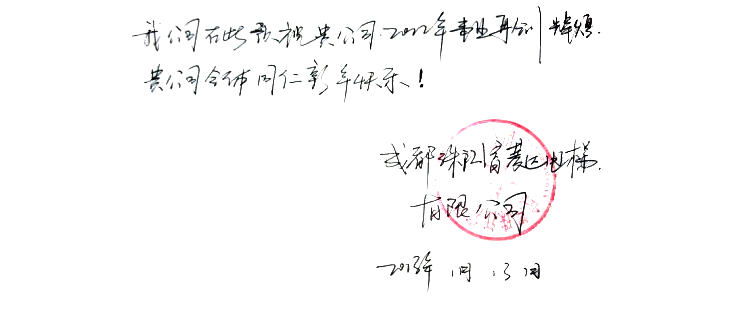 我们在此恭祝贵公司2022年事业再创辉煌.
贵公司全体同仁新年快乐!
成都珠江富菱电梯
有限公司
年1月13日